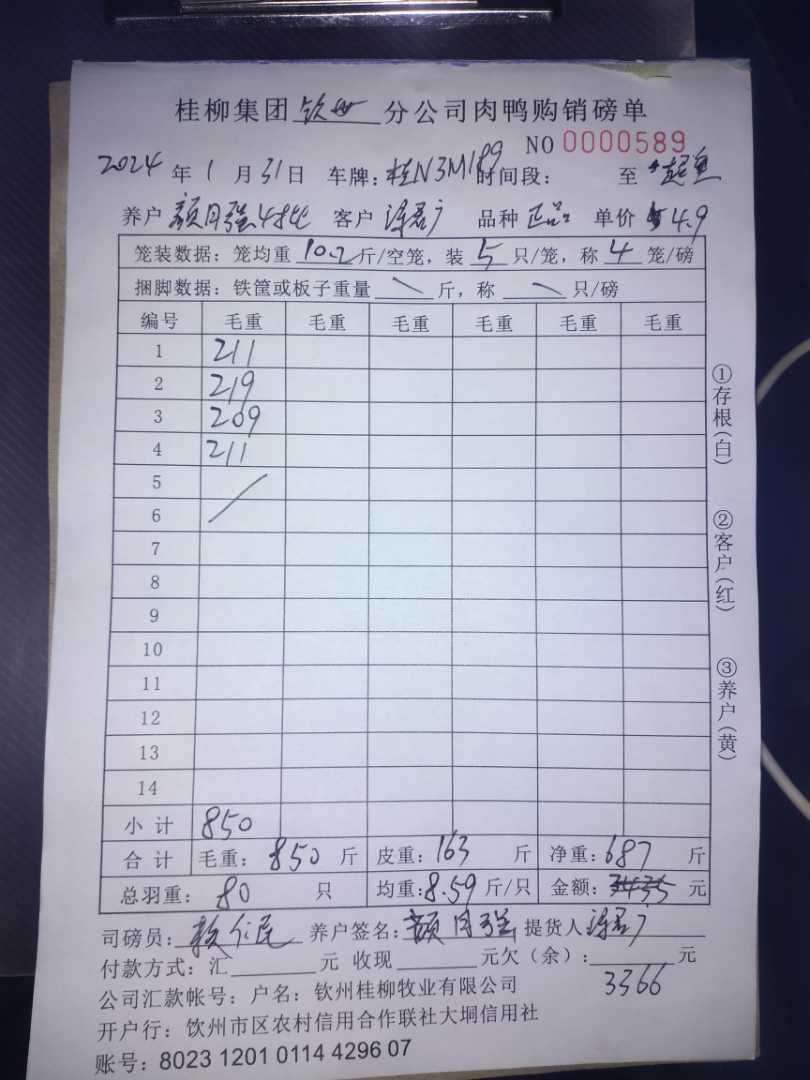 桂柳集团 钦州 分公司肉鸭购销磅单
NO 0000589
2024 年 1 月 31 日 车牌：桂N3M189 时间段： 至
养户 颜月强4批 客户 涂君广 品种 正品 单价 4.9
笼装数据：笼均重 10.2 斤/空笼，装 5 只/笼，称 4 笼/磅
捆脚数据：铁筐或板子重量 \ 斤，称 \ 只/磅
编号 毛重 毛重 毛重 毛重 毛重 毛重
1 211
2 219
3 209
4 211
5
6
7
8
9
10
11
12
13
14
小 计 850
合 计 毛重：850 斤 皮重：163 斤 净重：687 斤
总羽重：80 只 均重：8.59 斤/只 金额：3435 元
司磅员： 仁民 养户签名：颜月强 提货人 涂君广
付款方式：汇 元 收现 元欠（余）： 元
3366
公司汇款帐号：户名：钦州桂柳牧业有限公司
开户行：饮州市区农村信用合作联社大垌信用社
账号：8023 1201 0114 4296 07
①存根(白)
②客户(红)
③养户(黄)